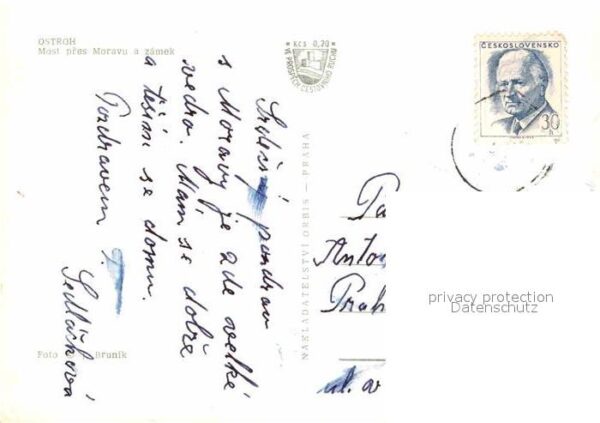 OSTROH
Most přes Moravu a zámek
Kčs 0,20
VE PROSPĚCH CESTOVNÍHO RUCHU
ČESKOSLOVENSKO
30
h
Srdečný pozdrav
s Moravy je zde velké
vedro. Mám se dobře
a těším se domu.
Pozdravem J.
Sedlářková
NAKLADATELSTVÍ ORBIS – PRAHA
Pa
Anto
Prah
ul.
Foto Brunik
privacy protection
Datenschutz